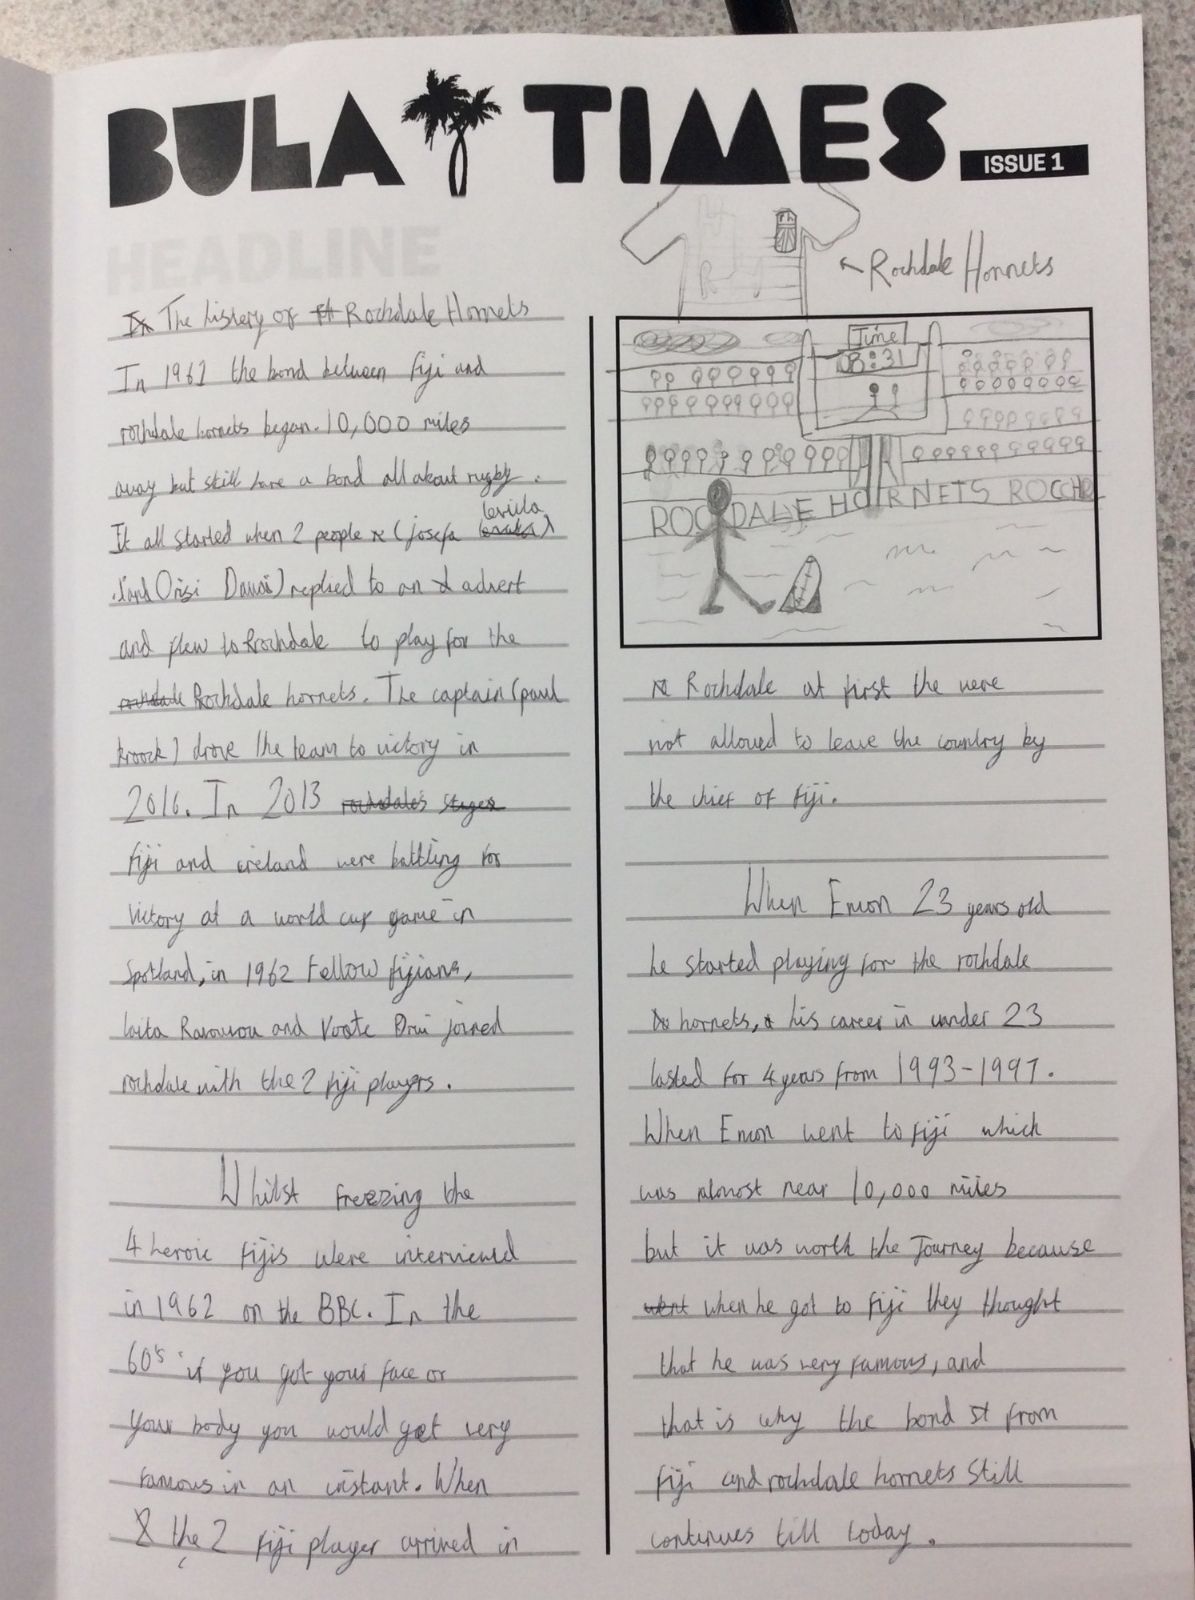 BULA TIMES
ISSUE 1
HEADLINE
The history of Rochdale Hornets
In 1961 the bond between fiji and
rochdale hornets began. 10,000 miles
away but still have a bond all about rugby.
It all started when 2 people (josefa levula
and Orisi Dawai) replied to an advert
and flew to Rochdale to play for the
Rochdale hornets. The captain (paul
) drove the team to victory in
2016. In 2013 rochdale's stages
fiji and ireland were battling for
victory at a world cup game in
Spotland, in 1962 Fellow fijians,
laita Ravouvou and Voate Drui joined
rochdale with the 2 fiji players.
Whilst freezing the
4 heroic fijis were interviewed
in 1962 on the BBC. In the
60's if you got your face or
your body you would get very
famous in an instant. When
the 2 fiji player arrived in
Rochdale Hornets
rh
Time
08:31
ROCHDALE HORNETS ROCCH
Rochdale at first the were
not allowed to leave the country by
the chief of fiji.
When Emon 23 years old
he started playing for the rochdale
hornets, his career in under 23
lasted for 4 years from 1993-1997.
When Emon went to fiji which
was almost near 10,000 miles
but it was worth the Journey because
went when he got to fiji they thought
that he was very famous, and
that is why the bond st from
fiji and rochdale hornets still
continues till today.